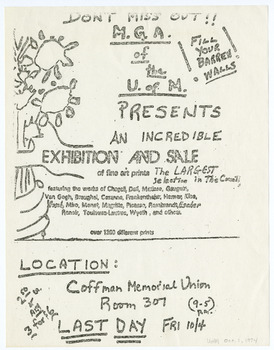 DON'T MISS OUT!!
M.G.A.
of
the
U. of M.
FILL
YOUR
BARREN
WALLS!
PRESENTS
AN INCREDIBLE
EXHIBITION AND SALE
of fine art prints The LARGEST
Selection in The
featuring the works of Chagall, Dali, Matisse, Gauguin,
Van Gogh, Brueghel, Cezanne, Frankenthaler, Homer, Klee,
Miro, Monet, Magritte, Picasso, Rembrandt,
Renoir, Toulouse-Lautrec, Wyeth, and others.
over 1200 different prints
LOCATION:
Coffman Memorial Union
Room 307 (9-5)
P.M.
LAST DAY FRI 10/4